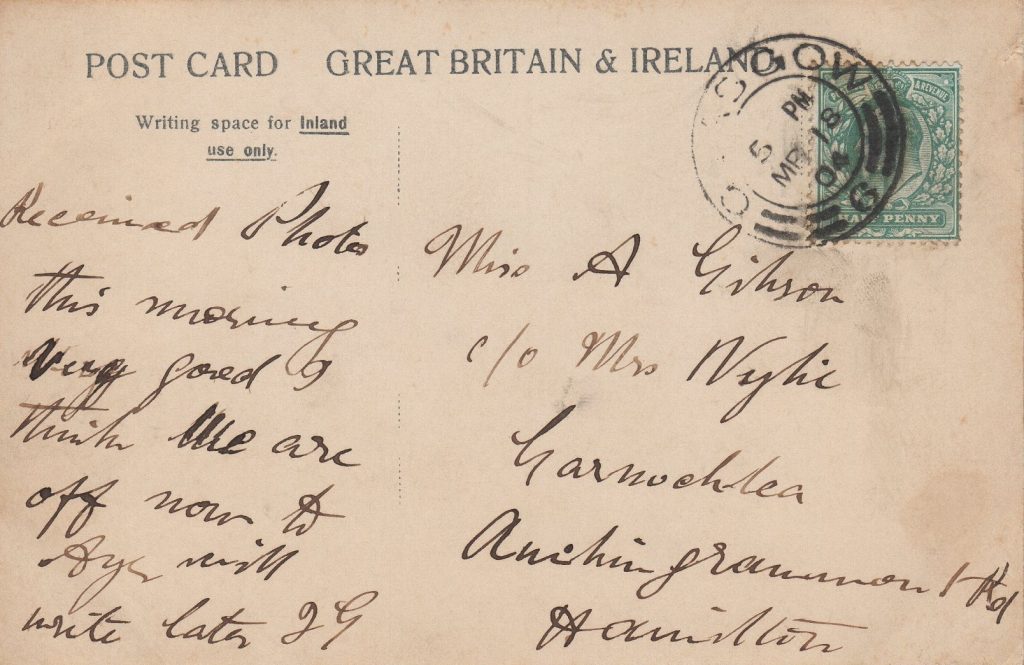 POST CARD GREAT BRITAIN & IRELAND
Writing space for Inland
use only.
GLASGOW
5 PM
MR 18
04
G
& REVENUE
HALF PENNY
Received Photos
this morning
very good I
think We are
off now to
Ayr will
write later JG
Miss A Gibson
c/o Mrs Wylie
Garnochlea
Auchingrammont Rd
Hamilton